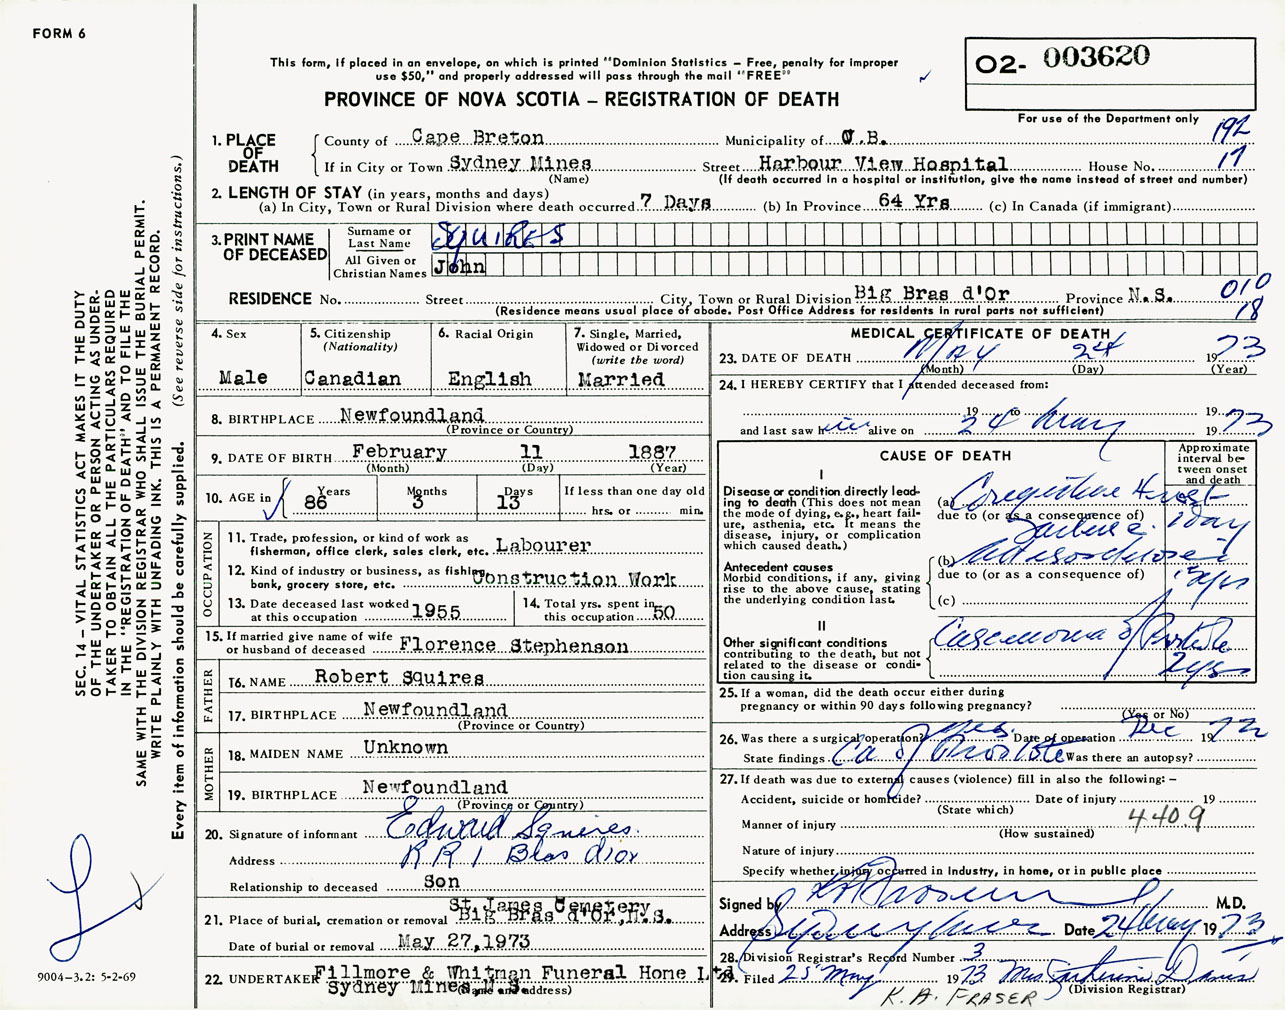 FORM 6
This form, if placed in an envelope, on which is printed "Dominion Statistics – Free, penalty for improper
use $50," and properly addressed will pass through the mail "FREE"
PROVINCE OF NOVA SCOTIA – REGISTRATION OF DEATH
02- 003620
For use of the Department only
192
17
1. PLACE OF DEATH
County of Cape Breton Municipality of C.B.
If in City or Town Sydney Mines Street Harbour View Hospital House No.
(Name) (If death occurred in a hospital or institution, give the name instead of street and number)
2. LENGTH OF STAY (in years, months and days)
(a) In City, Town or Rural Division where death occurred 7 Days (b) In Province 64 Yrs (c) In Canada (if immigrant)
3. PRINT NAME OF DECEASED
Surname or Last Name SQUIRES
All Given or Christian Names John
RESIDENCE No. Street City, Town or Rural Division Big Bras d'Or Province N.S.
010
18
(Residence means usual place of abode. Post Office Address for residents in rural parts not sufficient)
4. Sex
Male
5. Citizenship
(Nationality)
Canadian
6. Racial Origin
English
7. Single, Married,
Widowed or Divorced
(write the word)
Married
8. BIRTHPLACE Newfoundland
(Province or Country)
9. DATE OF BIRTH February 11 1887
(Month) (Day) (Year)
10. AGE in Years 86 Months 3 Days 13 If less than one day old
hrs. or min.
OCCUPATION
11. Trade, profession, or kind of work as
fisherman, office clerk, sales clerk, etc. Labourer
12. Kind of industry or business, as fishing,
bank, grocery store, etc. Construction Work
13. Date deceased last worked
at this occupation 1955
14. Total yrs. spent in
this occupation 50
15. If married give name of wife
or husband of deceased Florence Stephenson
FATHER
16. NAME Robert Squires
17. BIRTHPLACE Newfoundland
(Province or Country)
MOTHER
18. MAIDEN NAME Unknown
19. BIRTHPLACE Newfoundland
(Province or Country)
20. Signature of informant Edward Squires
Address R R 1 Bras d'Or
Relationship to deceased Son
21. Place of burial, cremation or removal St James Cemetery
Big Bras d'Or, N.S.
Date of burial or removal May 27, 1973
22. UNDERTAKER Fillmore & Whitman Funeral Home Ltd
Sydney Mines, N.S.
(Name and address)
MEDICAL CERTIFICATE OF DEATH
23. DATE OF DEATH MAY 24 1973
(Month) (Day) (Year)
24. I HEREBY CERTIFY that I attended deceased from:
19 to 19
and last saw him alive on 24 May 1973
CAUSE OF DEATH
Approximate
interval be-
tween onset
and death
I
Disease or condition directly lead-
ing to death (This does not mean
the mode of dying, e.g., heart fail-
ure, asthenia, etc. It means the
disease, injury, or complication
which caused death.)
(a) Congestive Heart
due to (or as a consequence of)
Failure 1 day
Antecedent causes
Morbid conditions, if any, giving
rise to the above cause, stating
the underlying condition last.
(b) Arteriosclerosis
due to (or as a consequence of)
yrs
(c)
II
Other significant conditions
contributing to the death, but not
related to the disease or condi-
tion causing it.
Carcinoma of Prostate
2 yrs
25. If a woman, did the death occur either during
pregnancy or within 90 days following pregnancy?
(Yes or No)
26. Was there a surgical operation? yes Date of operation Dec 1972
State findings Ca of Prostate Was there an autopsy?
27. If death was due to external causes (violence) fill in also the following: –
Accident, suicide or homicide? Date of injury 19
(State which)
Manner of injury 440.9
(How sustained)
Nature of injury
Specify whether injury occurred in Industry, in home, or in public place
Signed by M.D.
Address Sydney Mines Date 24 May 1973
28. Division Registrar's Record Number 3
29. Filed 25 May 1973 Mrs Catherine Davis
(Division Registrar)
K. A. FRASER
SEC. 14 – VITAL STATISTICS ACT MAKES IT THE DUTY
OF THE UNDERTAKER OR PERSON ACTING AS UNDER-
TAKER TO OBTAIN ALL THE PARTICULARS REQUIRED
IN THE "REGISTRATION OF DEATH" AND TO FILE THE
SAME WITH THE DIVISION REGISTRAR WHO SHALL ISSUE THE BURIAL PERMIT.
WRITE PLAINLY WITH UNFADING INK. THIS IS A PERMANENT RECORD.
Every item of information should be carefully supplied. (See reverse side for instructions.)
9004–3.2: 5-2-69